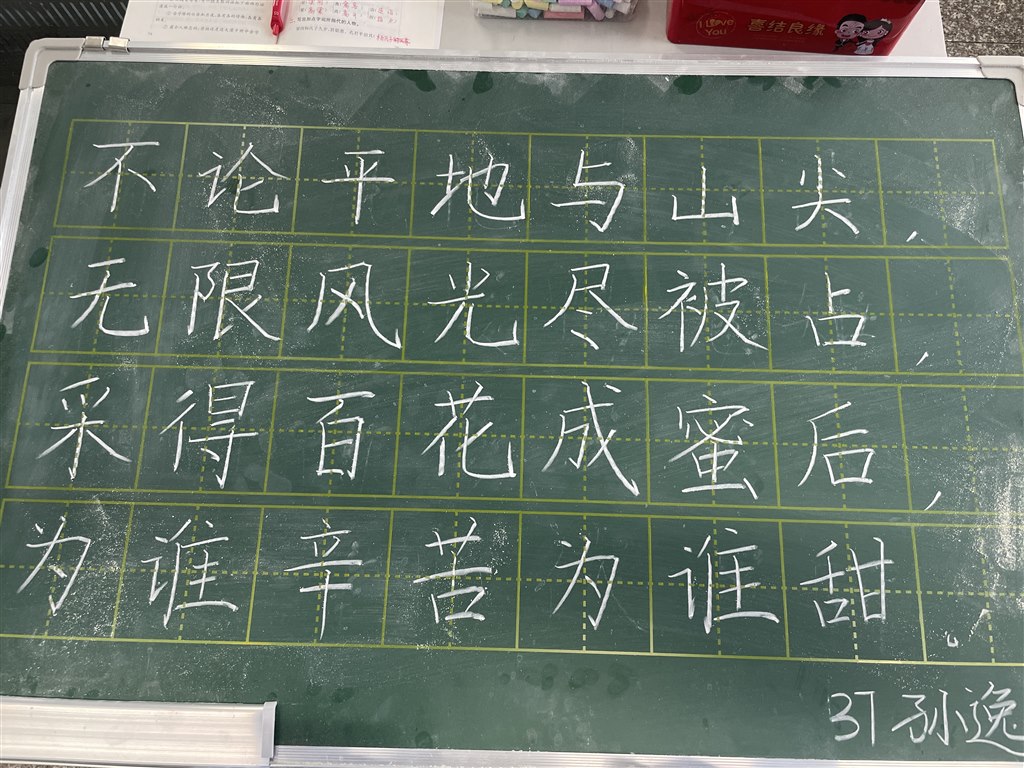 I LOVE YOU
喜结良缘
不论平地与山尖,
无限风光尽被占,
采得百花成蜜后,
为谁辛苦为谁甜。
37 孙逸